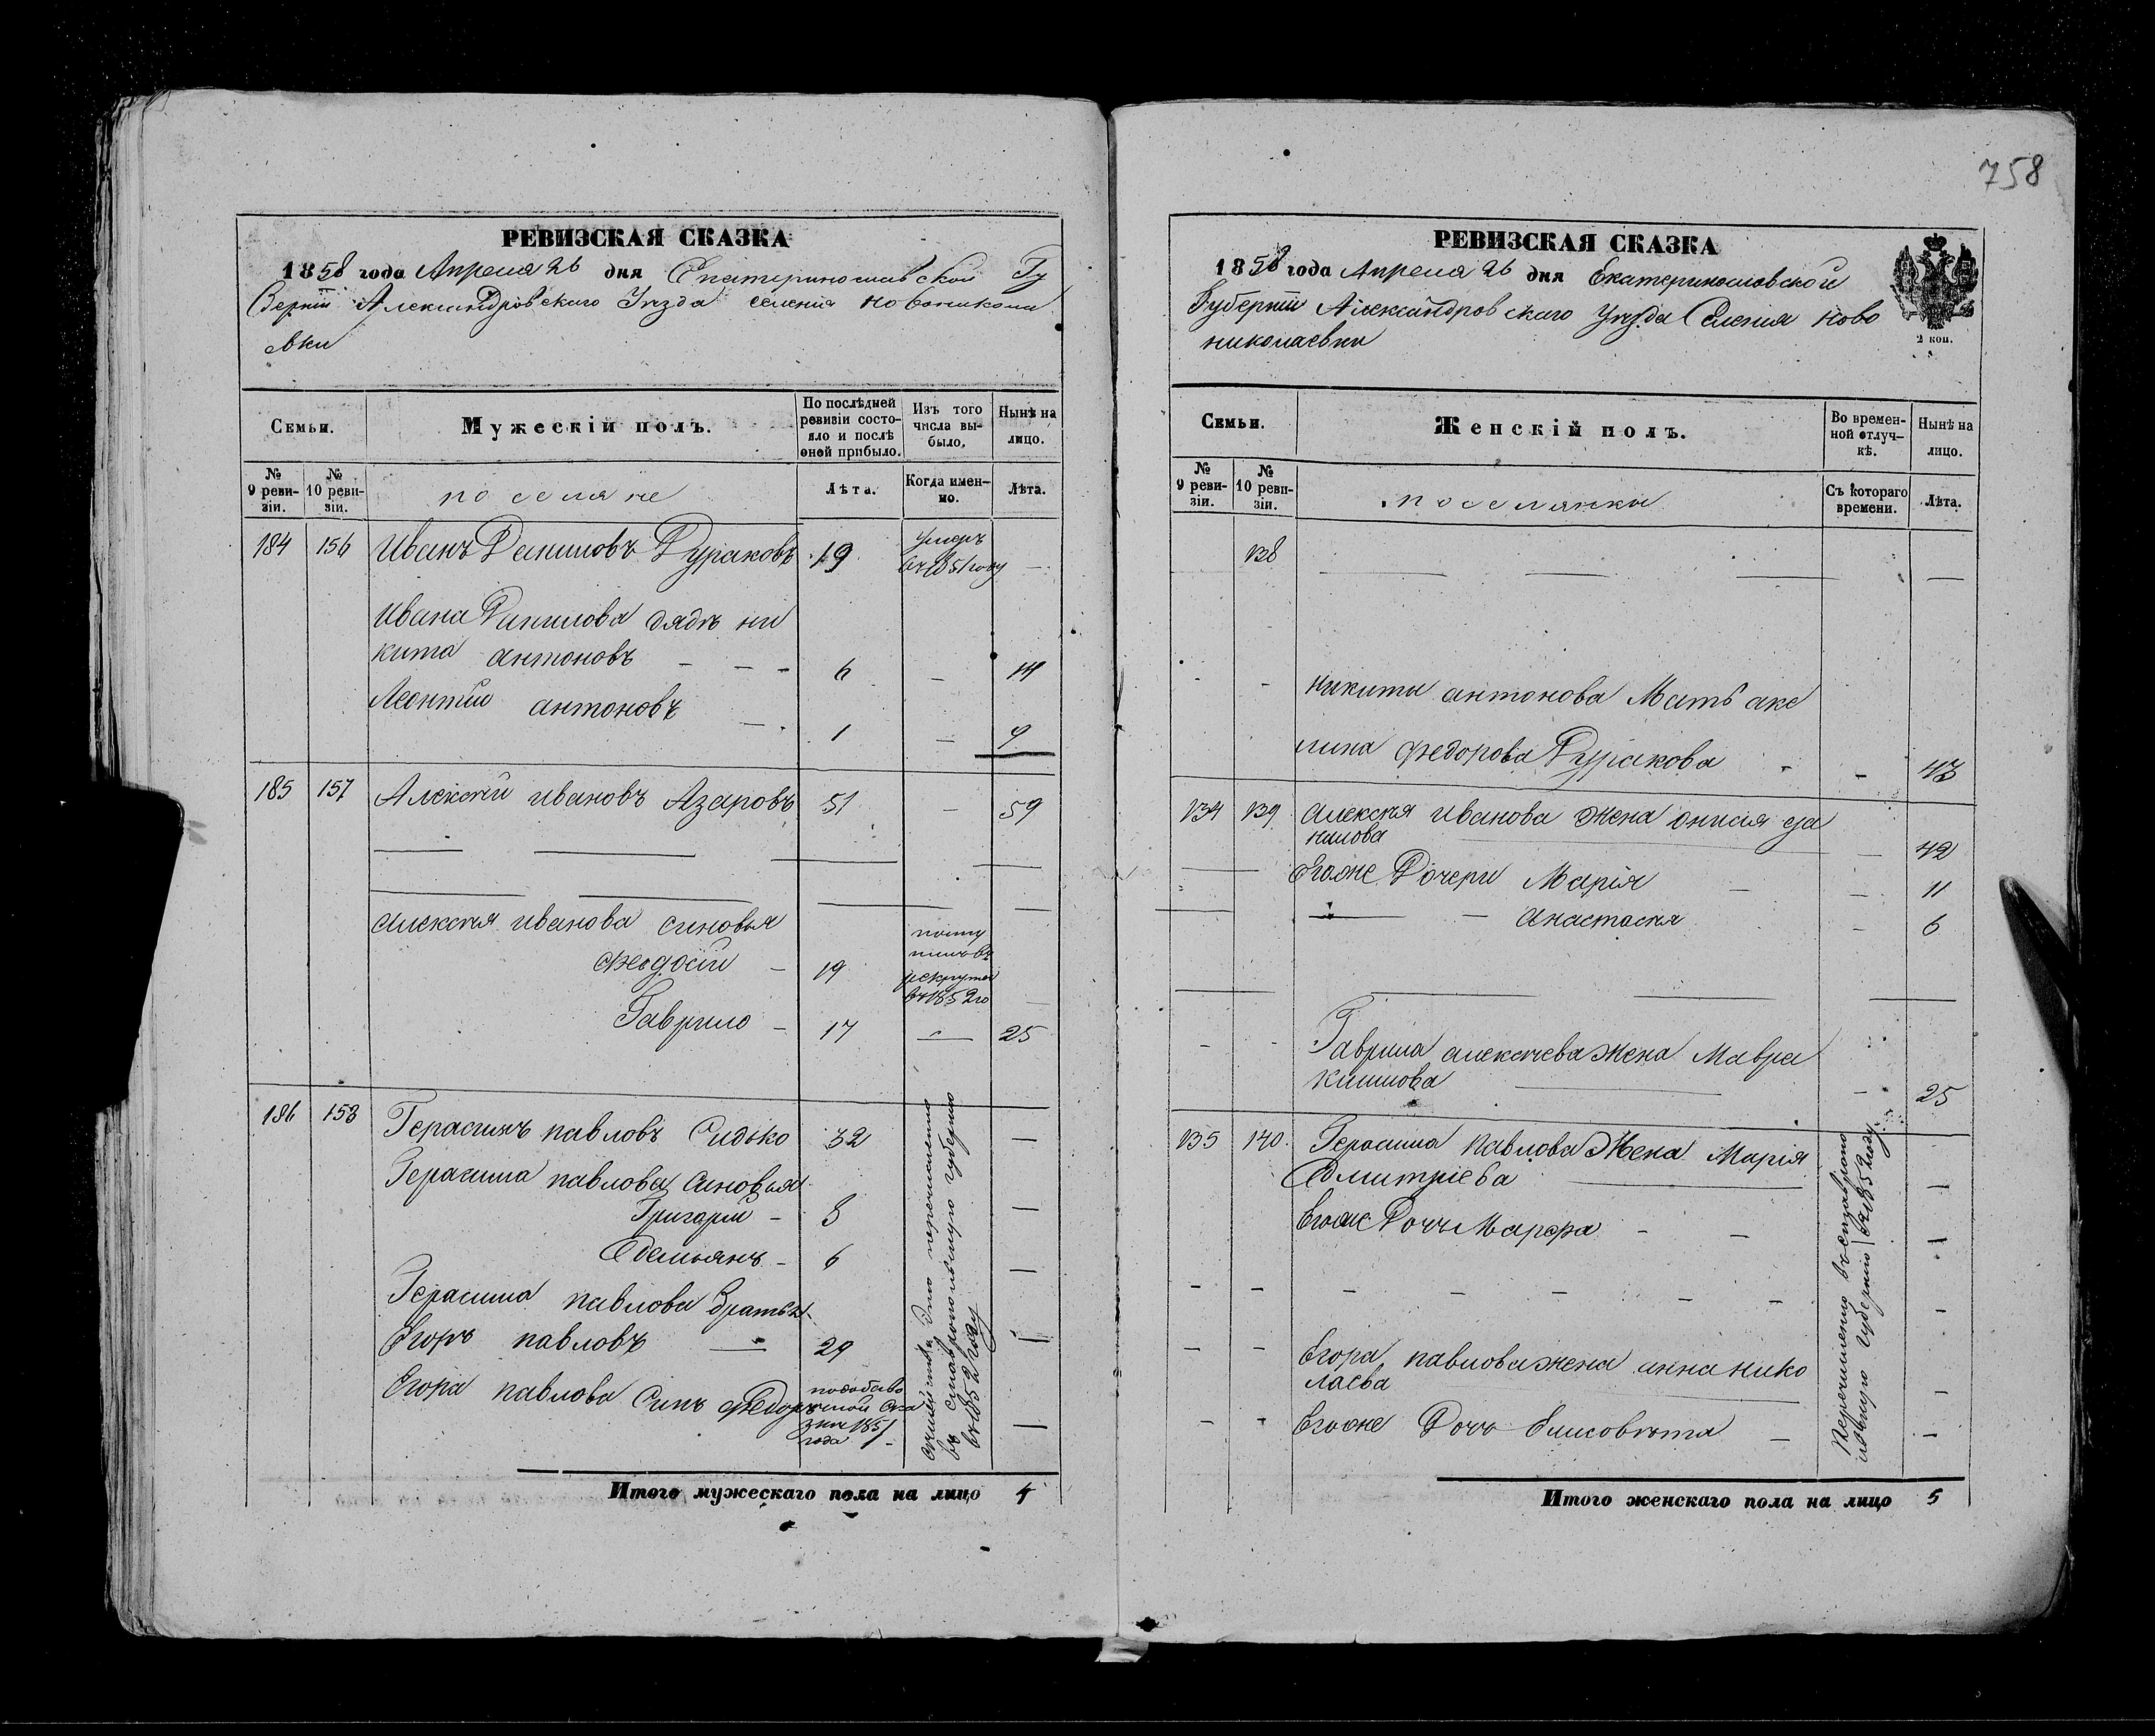 758
РЕВИЗСКАЯ СКАЗКА
1858 года Апреля 26 дня Екатеринославской Гу
Берніи Александровскаго Уезда селенія новоникола
евки
Семьи.
Мужескій полъ.
По послѣдней ревизіи состояло и послѣ оной прибыло.
Изъ того числа выбыло.
Нынѣ на лицо.
№ 9 ревизіи.
№ 10 ревизіи.
поселяне
Лѣта.
Когда именно.
Лѣта.
184 156 Иванъ Даниловъ Дураковъ 19 умеръ въ 1851 году —
Ивана Данилова дядя ни
кита антоновъ — — — 6 — 14
Леонтій антоновъ — 1 — 9
185 157 Алексѣй ивановъ Азаровъ 51 — 59
алексѣя иванова синовья
Феодосій — 19 поступилъ въ рекруты въ 1852 го —
Гаврило — 17 — 25
186 158 Герасимъ павловъ Сидько 32 —
Герасима павлова синовья
Григорій — 8 —
Емельянъ — 6 —
Герасима павлова братья
Егоръ павловъ — 29 —
Егора павлова Синъ Федоръ 1 —
перечислено
въ ставропольскую губернію
въ 1852 году
Итого мужескаго пола на лицо 4
РЕВИЗСКАЯ СКАЗКА
1858 года Апреля 26 дня Екатеринославской
Губерніи Александровскаго Уезда Селенія ново
николаевки
2 коп.
Семьи.
Женскій полъ.
Во временной отлучкѣ.
Нынѣ на лицо.
№ 9 ревизіи.
№ 10 ревизіи.
поселянки
Съ котораго времени.
Лѣта.
138 — — — —
никиты антонова Мать аку
лина федорова Дуракова — — 43
134 139 алексѣя иванова жена онисия да
нилова — 42
Егоже Дочери Марія — — 11
— анастасия — 6
Гаврила алексѣева жена Мавра
климова — — 25
135 140 Герасима павлова Жена Марія
Дмитріева — —
Егоже Дочь Марфа — — —
Егора павлова жена анна нико
лаева —
Егоже Дочь Елисовѣта — —
Перечислено въ ставропо
льскую губернію въ 1852 году
Итого женскаго пола на лицо 5